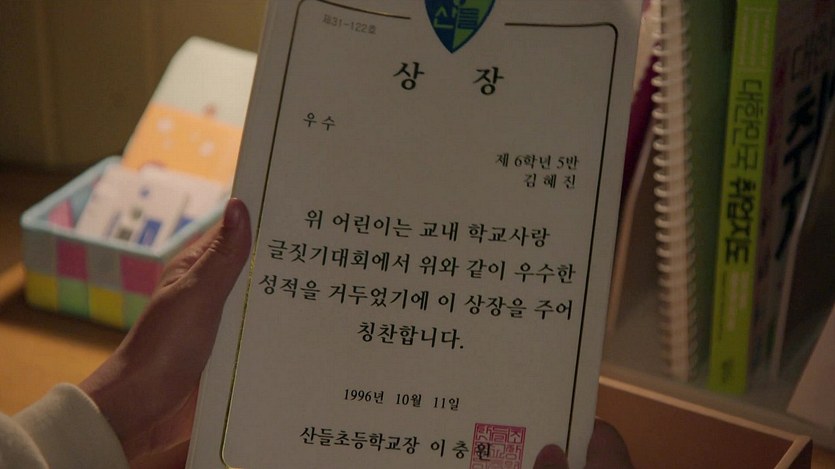 산들
제31-122호
상 장
우수
제 6학년 5반
김 혜 진
위 어린이는 교내 학교사랑
글짓기대회에서 위와 같이 우수한
성적을 거두었기에 이 상장을 주어
칭찬합니다.
1996년 10월 11일
산들초등학교장 이 충 원
대한민국 취업지도